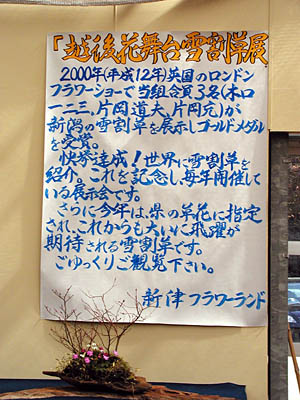 「越後花舞台雪割草展
2000年(平成12年)英国のロンドン
フラワーショーで当組合員3名(水口
一二三、片岡道夫、片岡元)が
新潟の雪割草を展示しゴールドメダル
を受賞。
快挙達成!世界に雪割草を
紹介。これを記念し、毎年開催して
いる展示会です。
さらに今年は、県の草花に指定
され、これからも大いに飛躍が
期待される雪割草です。
ごゆっくりご観覧下さい。
新津フラワーランド